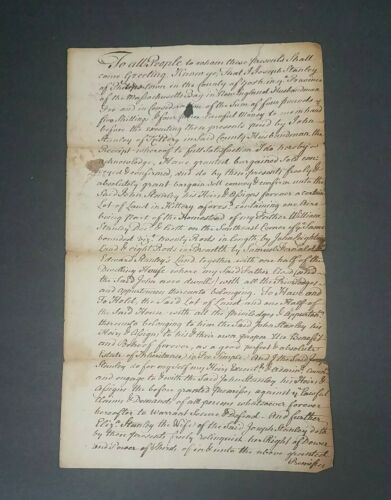 To all People to whom these Presents Shall
come Greeting. Know ye, That I Joseph Stanley
of town in the County of York in the Province
of the Massachusetts Bay in New England Husbandman
For and in Consideration of the Sum of four pounds
five Shillings & four Lawful Money to me in hand
before the ensealing these presents paid by John
Stanley of Kittery in Said County Husbandman, the
Receipt whereof to full Satisfaction I do hereby
acknowledge, Have granted bargained Sold
and confirmed and do by these presents freely &
absolutely grant bargain sell convey & confirm unto the
Said John Stanley his Heirs & Assigns forever a certain
Lot of Land in Kittery aforesd containing one Acre
being part of the Homestead of my Father William
Stanley Decd & lieth on the Southeast Corner of ye Same
bounded viz. twenty Rods in length by John
Land & eight Rods in Breadth by Samuel
Edward Stanley's Land together with one half of the
Dwelling House where my said Father
the Said John now dwells with all the Priviledges
and appurtenances thereunto belonging. To Have and
To Hold, the Said Lot of Land and one Half of
the Said House with all the priviledges & Appurtences
thereunto belonging to him the Said John Stanley his
Heirs & Assigns to his & their own proper Use Benefit
and Behoof forever, as a good perfect & absolute
Estate of Inheritance in Fee Simple. And I the Said Joseph
Stanley do for myself my Heirs Execrs & Adminrs covenant
and engage to & with the Said John Stanley his Heirs &
Assigns the before granted Premises against ye Lawful
Claims & Demands of all persons whatsoever forever
hereafter to Warrant Secure & Defend. And further
Eliza Stanley the Wife of the Said Joseph Stanley doth
by these presents freely relinquish her Right of Dower
and Power of Thirds, of in & unto the above granted
Premises